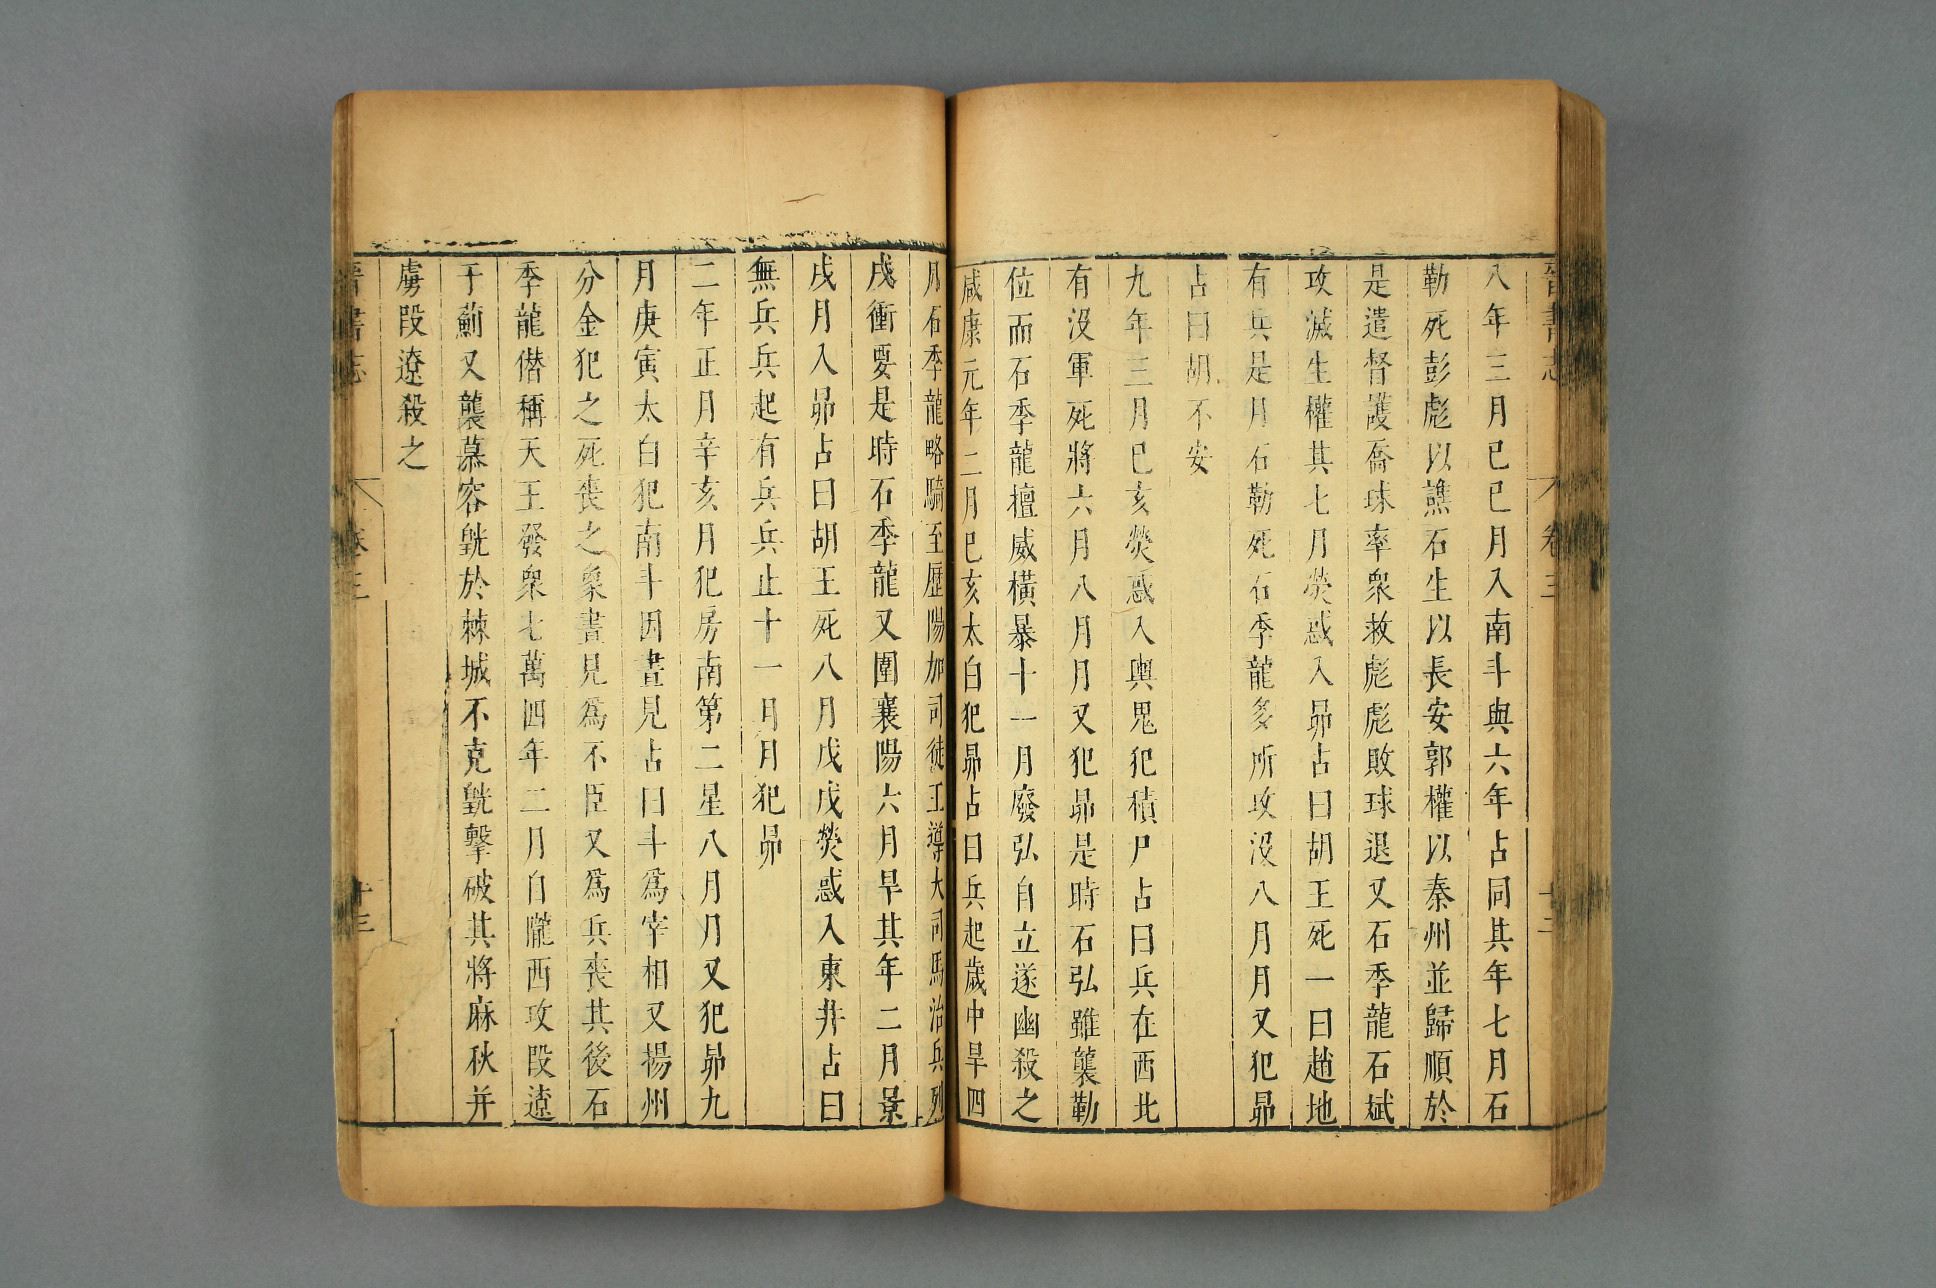 晉書志
卷三
八年三月己巳月入南斗與六年占同其年七月石
勒死彭彪以譙石生以長安郭權以秦州並歸順於
是遣督護喬球率衆救彪彪敗球退又石季龍石斌
攻滅生權其七月熒惑入昴占曰胡王死一曰趙地
有兵是月石勒死石季龍多所攻沒八月月又犯昴
占曰胡不安
九年三月己亥熒惑入輿鬼犯積尸占曰兵在西北
有沒軍死將六月八月月又犯昴是時石弘雖襲勒
位而石季龍擅威橫暴十一月廢弘自立遂幽殺之
咸康元年二月己亥太白犯昴占曰兵起歲中旱四
月石季龍略騎至歷陽加司徒王導大司馬治兵列
戍衝要是時石季龍又圍襄陽六月旱其年二月景
戌月入昴占曰胡王死八月戊戌熒惑入東井占曰
無兵兵起有兵兵止十一月月犯昴
二年正月辛亥月犯房南第二星八月月又犯昴九
月庚寅太白犯南斗因晝見占曰斗爲宰相又揚州
分金犯之死喪之象晝見爲不臣又爲兵喪其後石
季龍僭稱天王發衆七萬四年二月自隴西攻段遼
于薊又襲慕容皝於棘城不克皝擊破其將麻秋并
虜段遼殺之
晉書志
卷三
十三